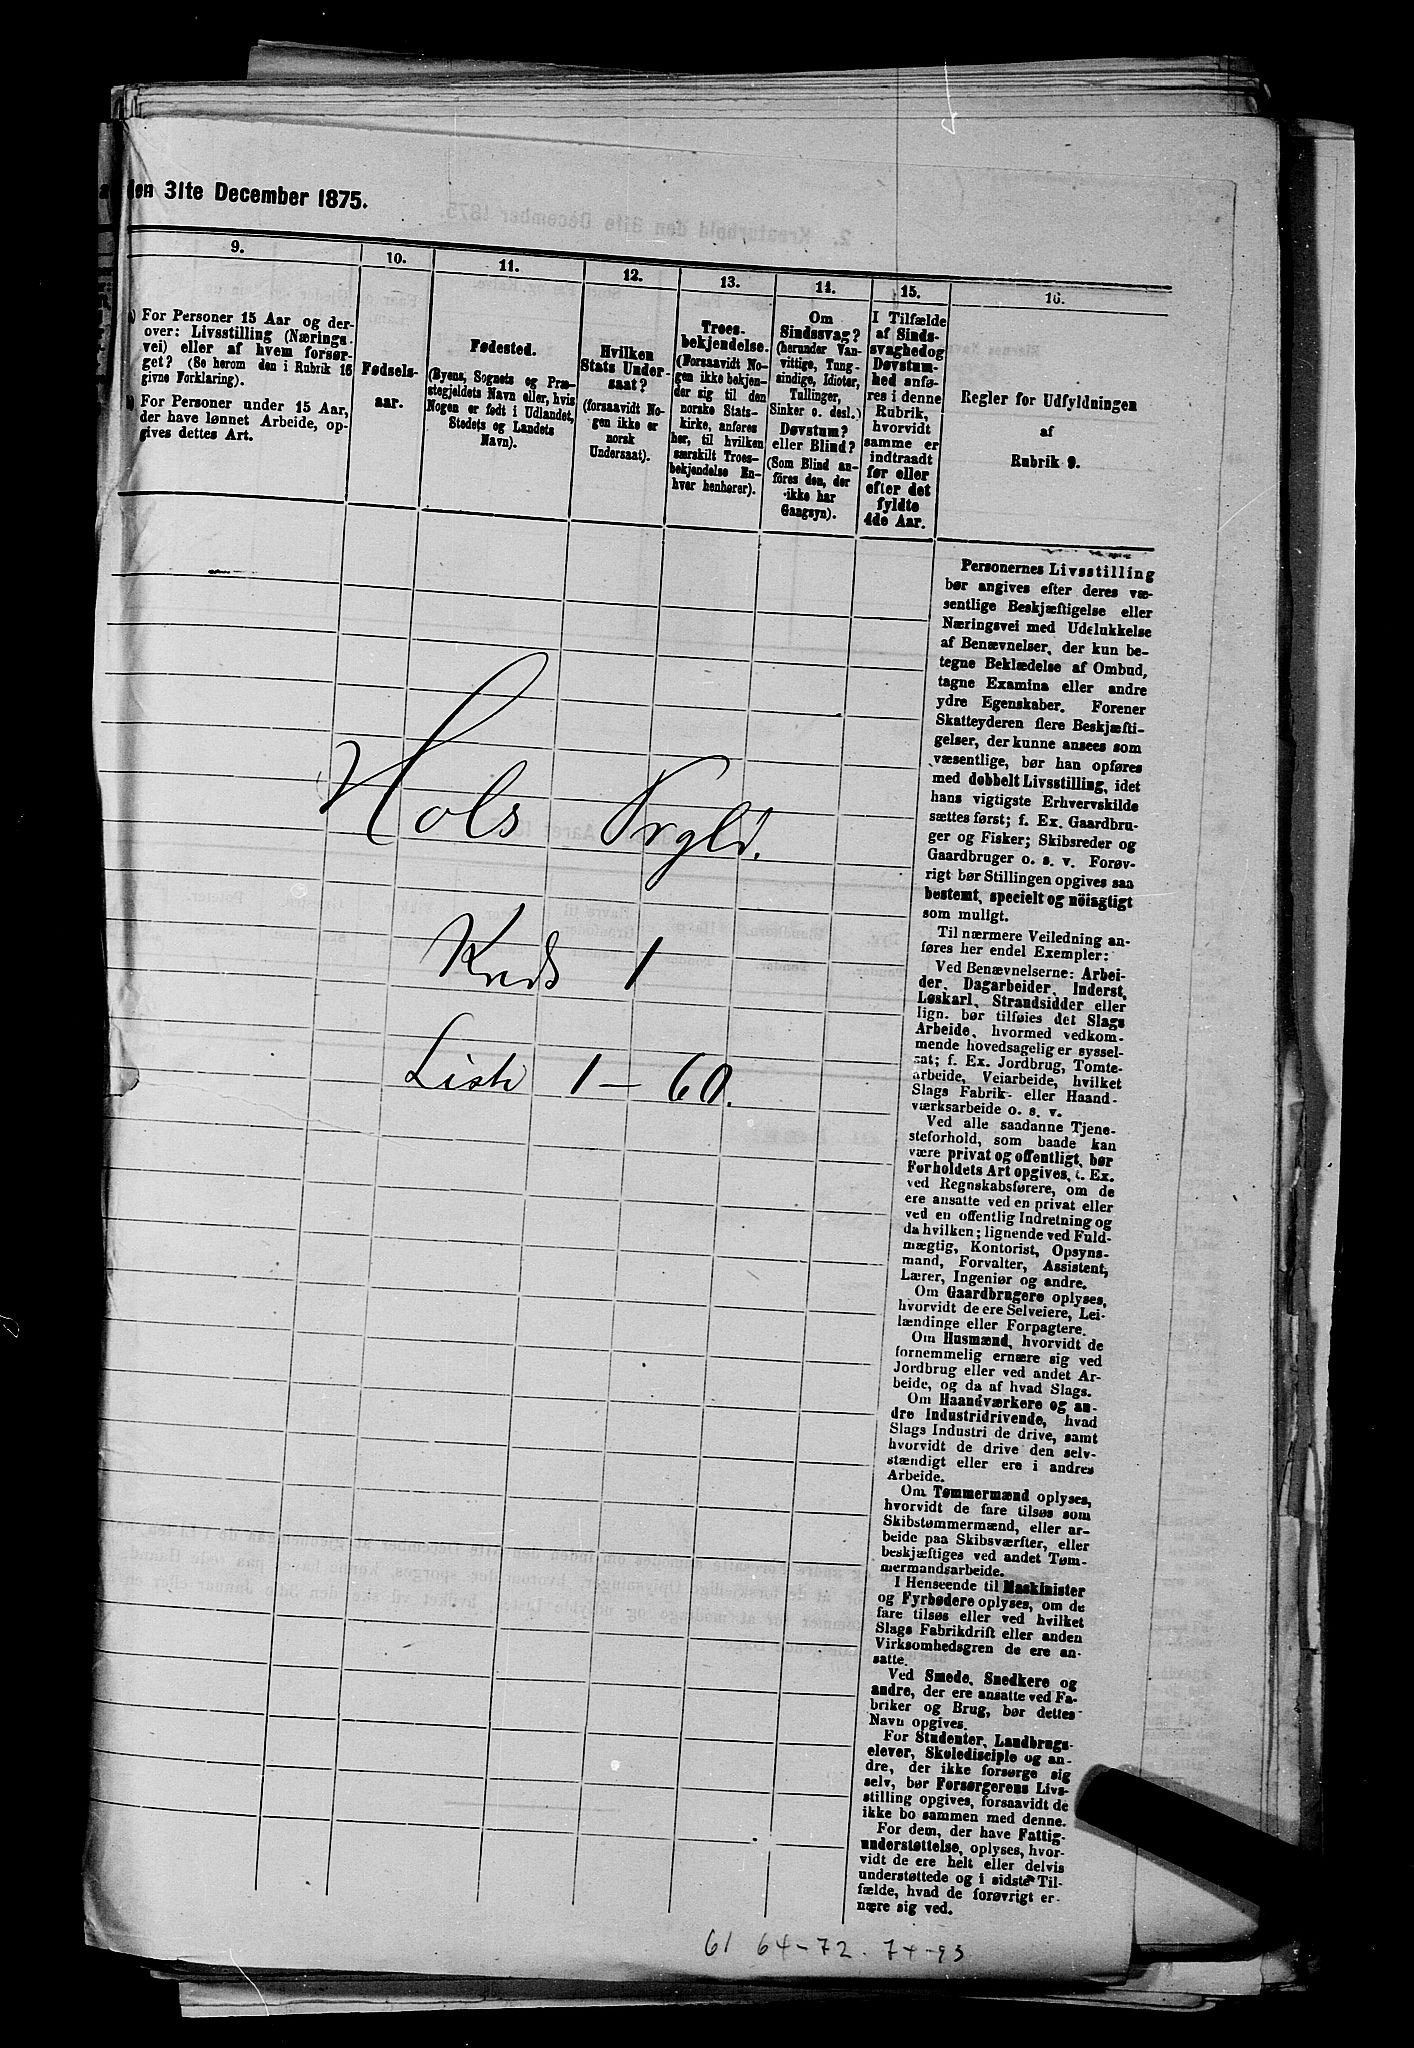 den 31te December 1875.
9.
10.
11.
12.
13.
14.
15.
16.
a) For Personer 15 Aar og der-
over: Livsstilling (Nærings
vei) eller af hvem forsør-
get? (Se herom den i Rubrik 16
givne Forklaring).
b) For Personer under 15 Aar,
der have lønnet Arbeide, op-
gives dettes Art.
Fødsels-
aar.
Fødested.
(Byens, Sognets og Præ-
stegjeldets Navn eller, hvis
Nogen er født i Udlandet,
Stedets og Landets
Navn).
Hvilken
Stats Under-
saat?
(forsaavidt No-
gen ikke er
norsk
Undersaat).
Troes-
bekjendelse.
(Forsaavidt No-
gen ikke bekjen-
der sig til den
norske Stats-
kirke, anføres
her, til hvilken
særskilt Troes-
bekjendelse En-
hver henhører).
Om
Sindssvag?
(herunder Van-
vittige, Tung-
sindige, Idioter,
Tullinger,
Sinker o. desl.)
Døvstum?
eller Blind?
(Som Blind an-
føres den, der
ikke har
Gangsyn).
I Tilfælde
af Sinds-
svaghed og
Døvstum-
hed anfø-
res i denne
Rubrik,
hvorvidt
samme er
indtraadt
før eller
efter det
fyldte
4de Aar.
Regler for Udfyldningen
af
Rubrik 9.
Personernes Livsstilling
bør angives efter deres væ-
sentlige Beskjæftigelse eller
Næringsvei med Udelukkelse
af Benævnelser, der kun be-
tegne Beklædelse af Ombud,
tagne Examina eller andre
ydre Egenskaber. Forener
Skatteyderen flere Beskjæfti-
gelser, der kunne ansees som
væsentlige, bør han opføres
med dobbelt Livsstilling, idet
hans vigtigste Erhvervskilde
sættes først; f. Ex. Gaardbru-
ger og Fisker; Skibsreder og
Gaardbruger o. s. v. Forøv-
rigt bør Stillingen opgives saa
bestemt, specielt og nöiagtigt
som muligt.
Til nærmere Veiledning an-
føres her endel Exempler:
Ved Benævnelserne: Arbei-
der, Dagarbeider, Inderst,
Løskarl, Strandsidder eller
lign. bør tilføies det Slags
Arbeide, hvormed vedkom-
mende hovedsagelig er syssel-
sat; f. Ex. Jordbrug, Tomte-
arbeide, Veiarbeide, hvilket
Slags Fabrik- eller Haand-
værksarbeide o. s. v.
Ved alle saadanne Tjene-
steforhold, som baade kan
være privat og offentligt, bør
Forholdets Art opgives, f. Ex.
ved Regnskabsførere, om de
ere ansatte ved en privat eller
ved en offentlig Indretning og
da hvilken; lignende ved Fuld-
mægtig, Kontorist, Opsyns-
mand, Forvalter, Assistent,
Lærer, Ingeniør og andre.
Om Gaardbrugere oplyses,
hvorvidt de ere Selveiere, Lei-
lændinge eller Forpagtere.
Om Husmænd, hvorvidt de
fornemmelig ernære sig ved
Jordbrug eller ved andet Ar-
beide, og da af hvad Slags.
Om Haandværkere og an-
dre Industridrivende, hvad
Slags Industri de drive, samt
hvorvidt de drive den selv-
stændigt eller ere i andres
Arbeide.
Om Tømmermænd oplyses,
hvorvidt de fare tilsøs som
Skibstømmermænd, eller ar-
beide paa Skibsværfter, eller
beskjæftiges ved andet Tøm-
mermandsarbeide.
I Henseende til Maskinister
og Fyrbødere oplyses, om de
fare tilsøs eller ved hvilket
Slags Fabrikdrift eller anden
Virksomhedsgren de ere an-
satte.
Ved Smede, Snedkere og
andre, der ere ansatte ved Fa-
briker og Brug, bør dettes
Navn opgives.
For Studenter, Landbrugs-
elever, Skoledisciple og an-
dre, der ikke forsørge sig
selv, bør Forsørgerens Livs-
stilling opgives, forsaavidt de
ikke bo sammen med denne.
For dem, der have Fattig-
understøttelse, oplyses, hvor-
vidt de ere helt eller delvis
understøttede og i sidste Til-
fælde, hvad de forøvrigt er-
nære sig ved.
Hols Prgld.
Kreds 1
Liste 1-60.
61 64-72. 74-93